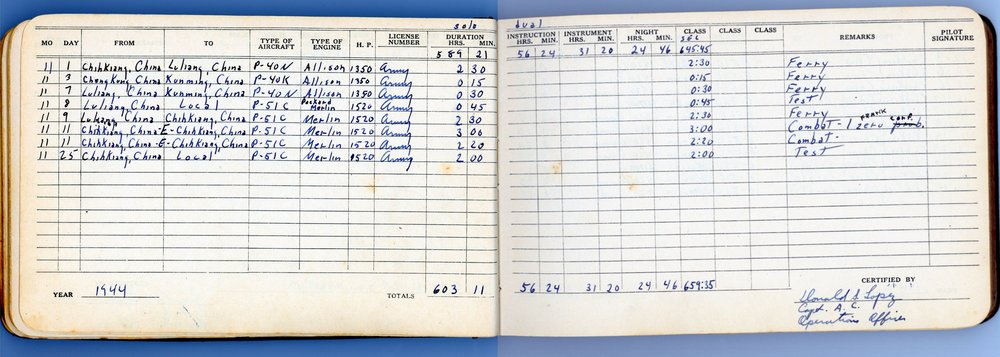 solo dual
MO DAY FROM TO TYPE OF AIRCRAFT TYPE OF ENGINE H. P. LICENSE NUMBER DURATION HRS. MIN. INSTRUCTION HRS. MIN. INSTRUMENT HRS. MIN. NIGHT HRS. MIN. CLASS SEL CLASS CLASS REMARKS PILOT SIGNATURE
589 21 56 24 31 20 24 46 645:45
11 1 Chihkiang, China Luliang, China P-40N Allison 1350 Army 2 30 2:30 Ferry
11 3 Chengkung, China Kunming, China P-40K Allison 1350 Army 0 15 0:15 Ferry
11 7 Luliang, China Kunming, China P-40N Allison 1350 Army 0 30 0:30 Ferry
11 8 Luliang, China Local P-51C Packard Merlin 1520 Army 0 45 0:45 Test
11 9 Luliang, China Chihkiang, China P-51C Merlin 1520 Army 2 30 2:30 Ferry
11 11 Chihkiang, China-E-Chihkiang, China P-51C Merlin 1520 Army 3 00 3:00 Combat - 1 zero FRANK CONF.
11 11 Chihkiang, China-E-Chihkiang, China P-51C Merlin 1520 Army 2 20 2:20 Combat -
11 25 Chihkiang, China Local P-51C Merlin 1520 Army 2 00 2:00 Test
YEAR 1944 TOTALS 603 11 56 24 31 20 24 46 659:35
CERTIFIED BY
Donald S Lopez
Capt. A. C.
Operations Officer